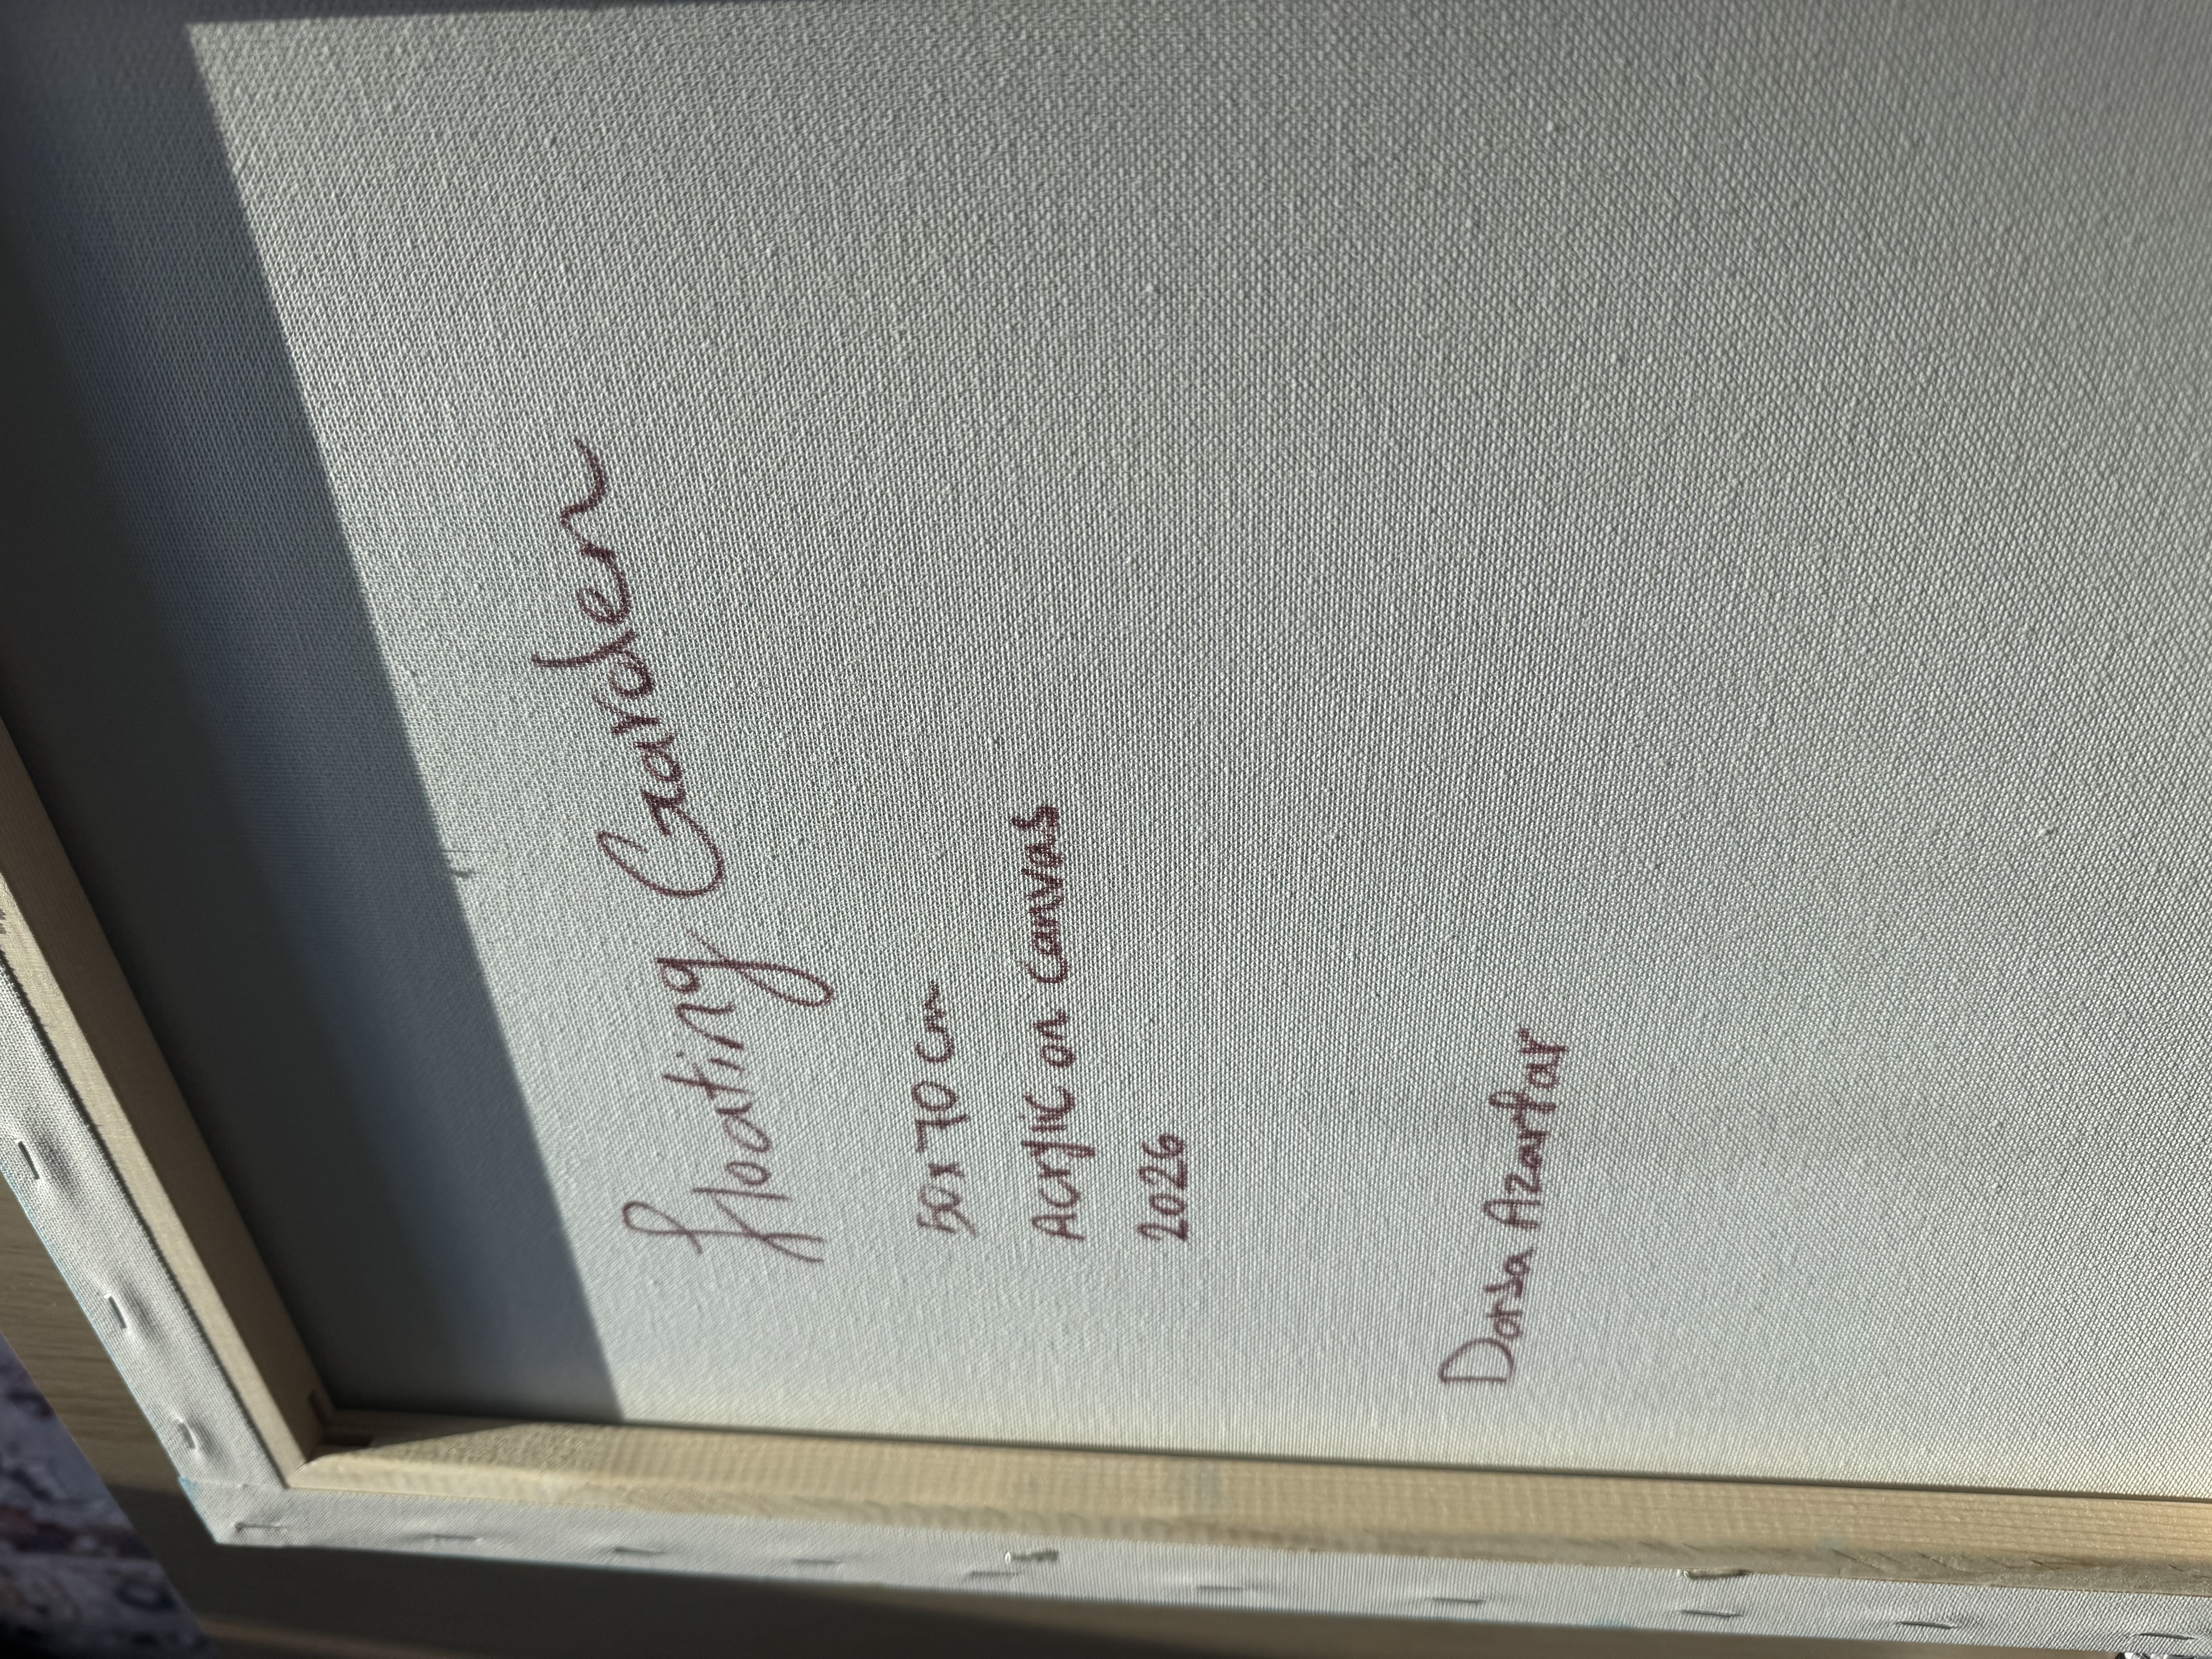 Floating Garden
50x70 cm
Acrylic on canvas
2026
Dorsa Azarfar